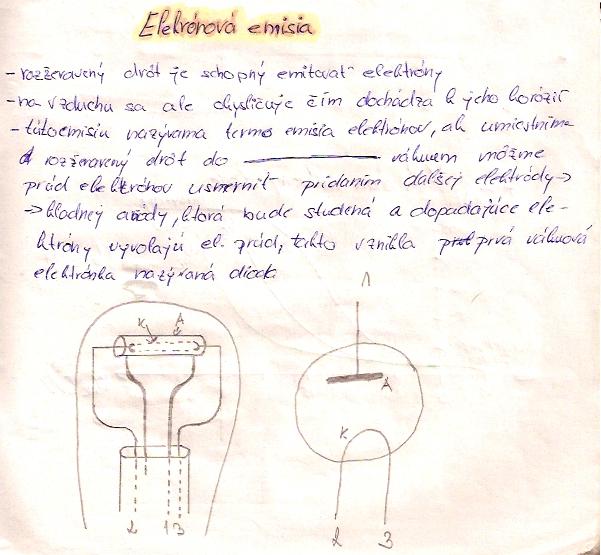 Elekrónová emisia
-rozžeravený drôt je schopný emitovať elektróny
-na vzduchu sa ale okysličuje čím dochádza k jeho korózií
-túto emisiu nazývama termo emisia elektrónov, ak umiestnime
rozžeravený drôt do vákuem môžme
prúd elektrónov usmerniť pridaním dalšej elektródy→
→kladnej anódy, ktorá bude studená a dopadajúce ele-
ktróny vyvolajú el. prúd, takto vznikla prvá vákuová
elektrónka nazývaná dioda
K A
2 1 3
1
A
K
2 3